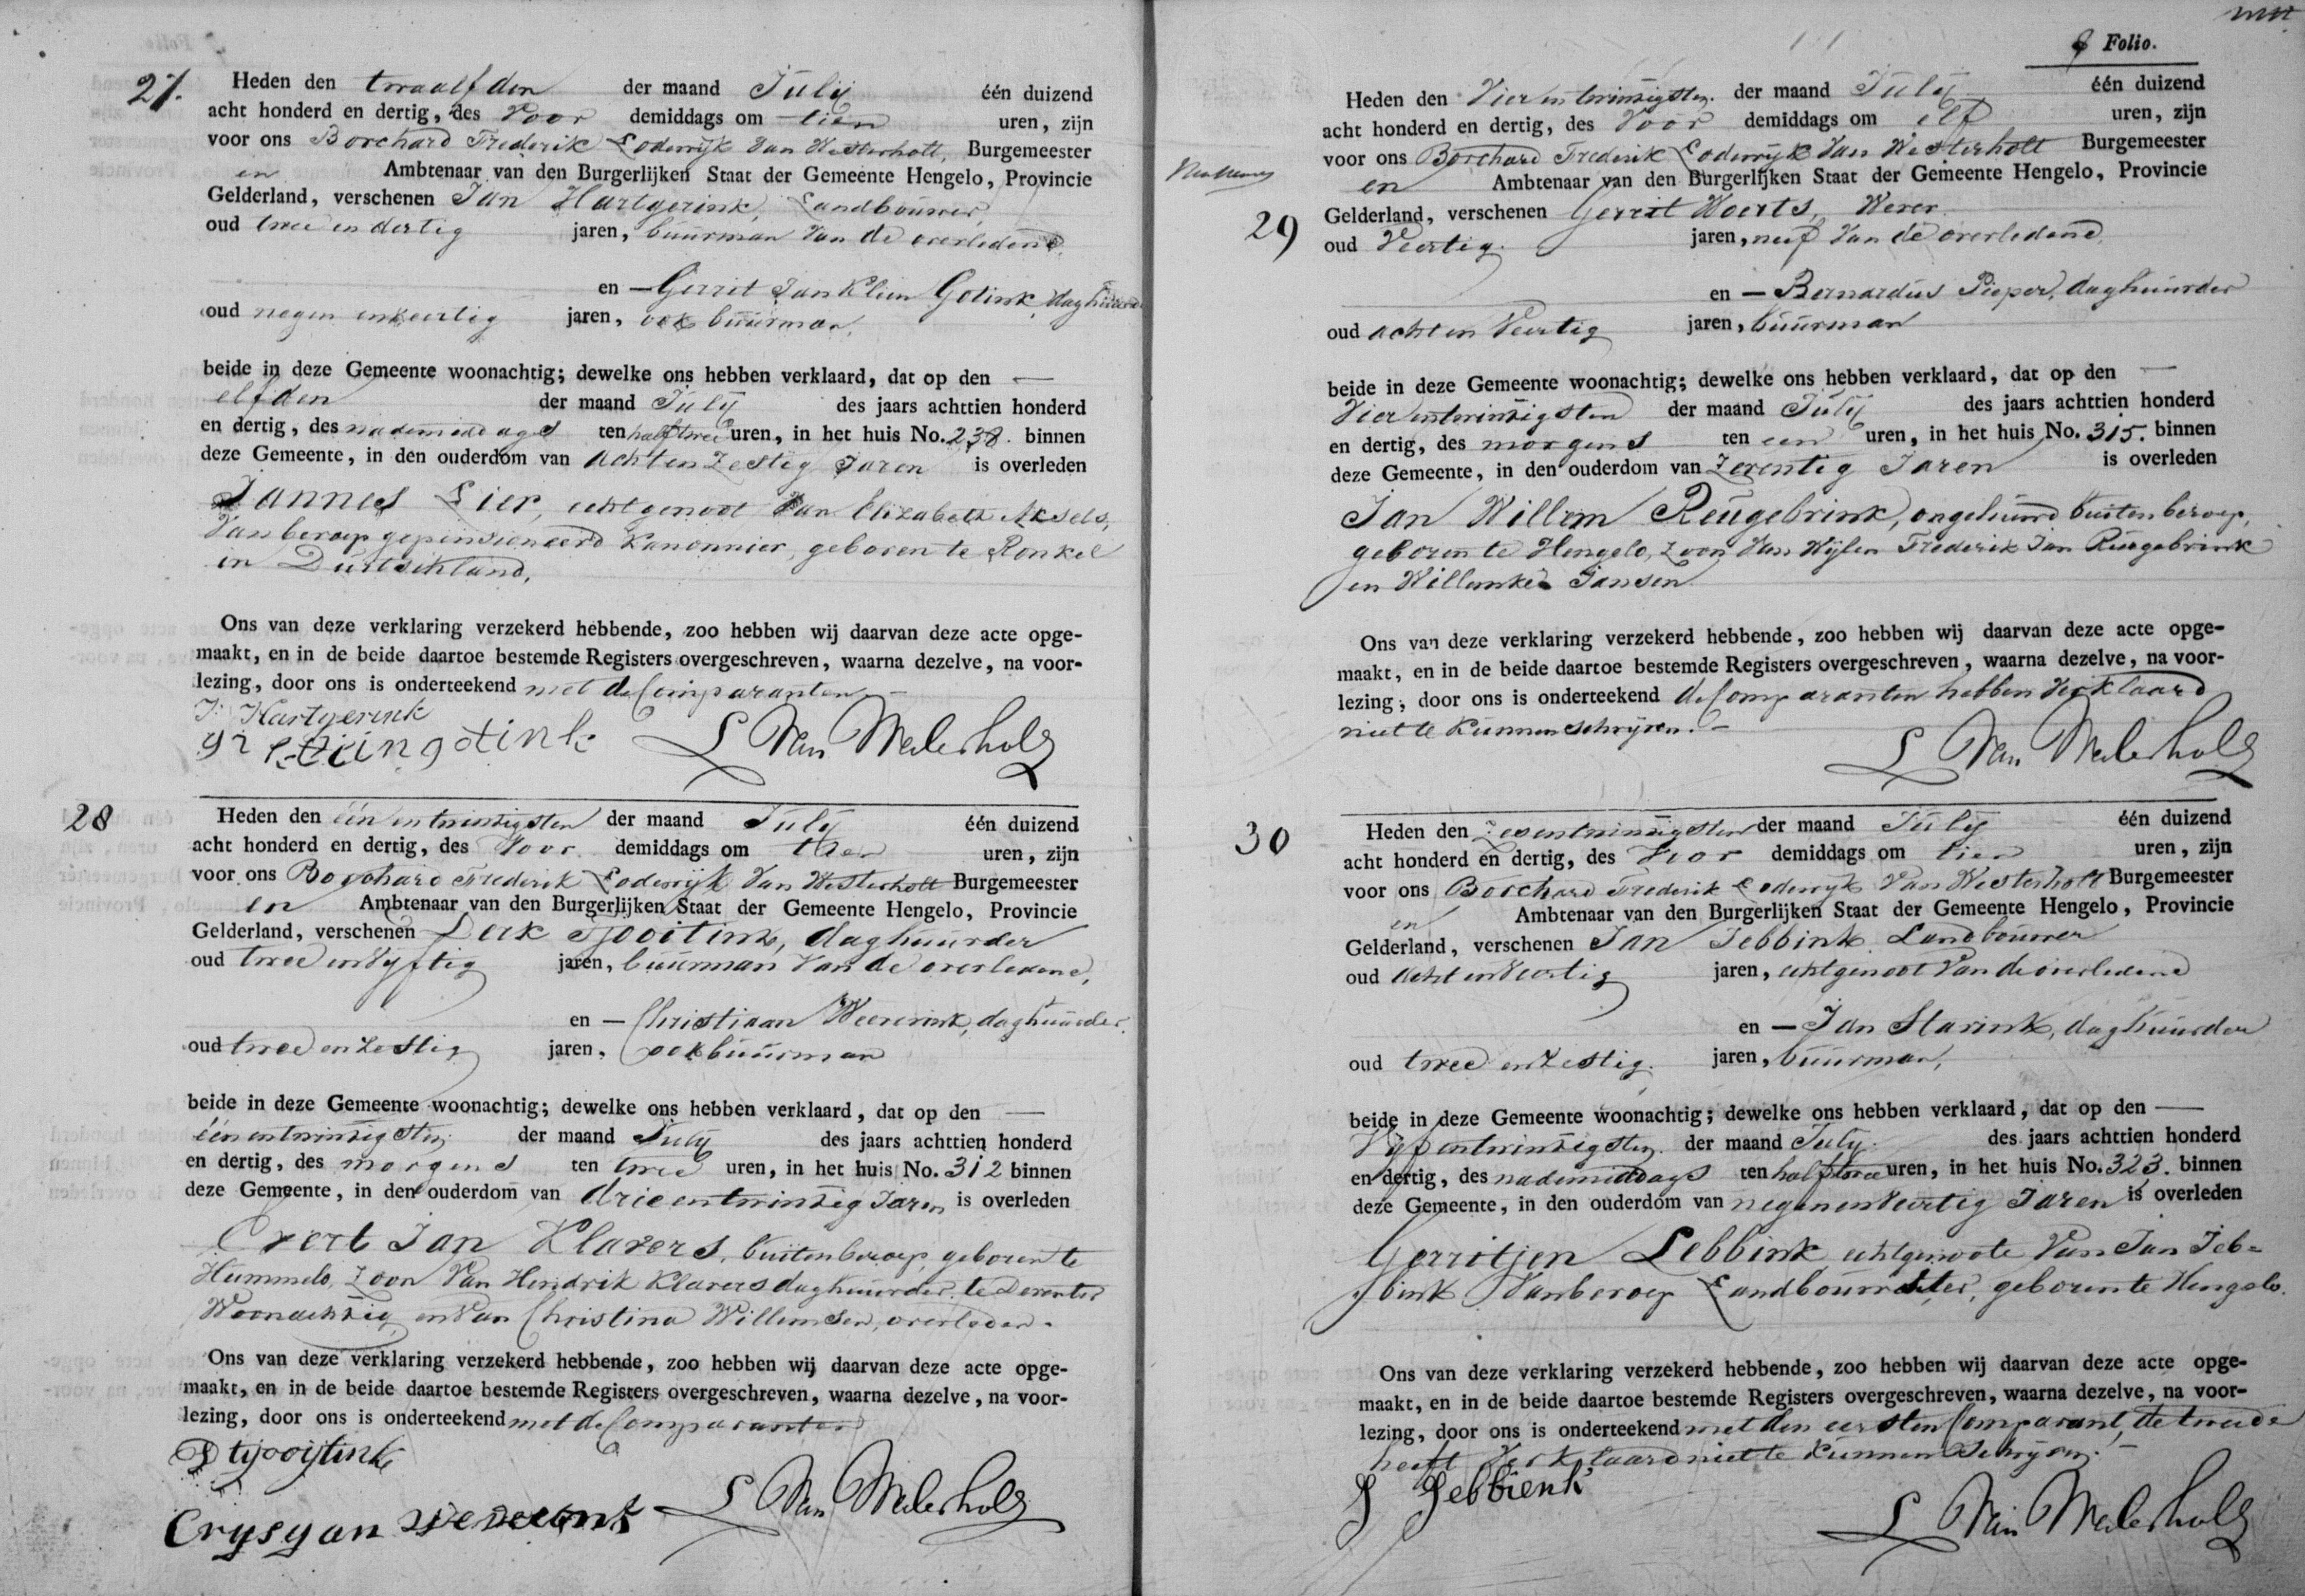 27. Heden den twaalfden der maand Julij één duizend
acht honderd en dertig, des Voor demiddags om tien uren, zijn
voor ons Borchard Frederik Lodewijk Van Westerholt, Burgemeester
en Ambtenaar van den Burgerlijken Staat der Gemeente Hengelo, Provincie
Gelderland, verschenen Jan Hartgerink, Landbouwer,
oud twee en dertig jaren, buurman Van de overledene,
en — Gerrit Jan Klein Gotink, daghuurder
oud negen en veertig jaren, ook buurman,
beide in deze Gemeente woonachtig; dewelke ons hebben verklaard, dat op den —
elfden der maand Julij des jaars achttien honderd
en dertig, des nademiddags ten half twee uren, in het huis No. 238. binnen
deze Gemeente, in den ouderdom van acht en Zestig Jaren is overleden
Jannes Lier, echtgenoot Van Elizabeth Aksels,
Van beroep gepensioneerd Kanonnier, geboren te Ronkel
in Duitschland,
Ons van deze verklaring verzekerd hebbende, zoo hebben wij daarvan deze acte opge-
maakt, en in de beide daartoe bestemde Registers overgeschreven, waarna dezelve, na voor-
lezing, door ons is onderteekend met de Comparanten. —
J: Hartgerink
L Van Westerholt
28 Heden den één en twintigsten der maand July één duizend
acht honderd en dertig, des Voor demiddags om tien uren, zijn
voor ons Borchard Frederik Lodewijk Van Westerholt Burgemeester
en Ambtenaar van den Burgerlijken Staat der Gemeente Hengelo, Provincie
Gelderland, verschenen Derk Tjooitink, daghuurder
oud twee en Vijftig jaren, buurman Van de overledene,
en — Christiaan Weverink, daghuurder,
oud twee en Zestig jaren, ook buurman
beide in deze Gemeente woonachtig; dewelke ons hebben verklaard, dat op den —
één en twintigsten der maand July des jaars achttien honderd
en dertig, des morgens ten twee uren, in het huis No. 312 binnen
deze Gemeente, in den ouderdom van drie en twintig Jaren is overleden
Evert Jan Klavers, buiten beroep, geboren te
Hummelo, Zoon Van Hendrik Klavers daghuurder, te Deventer
Woonachtig en Van Christina Willemsen, overleden.
Ons van deze verklaring verzekerd hebbende, zoo hebben wij daarvan deze acte opge-
maakt, en in de beide daartoe bestemde Registers overgeschreven, waarna dezelve, na voor-
lezing, door ons is onderteekend met de Comparanten
D tijooijtink
Crysyan
L Van Westerholt
Folio.
Heden den Vier en twintigsten der maand Julij één duizend
acht honderd en dertig, des Voor demiddags om elf uren, zijn
voor ons Borchard Frederik Lodewijk Van Westerholt Burgemeester
en Ambtenaar van den Burgerlijken Staat der Gemeente Hengelo, Provincie
29 Gelderland, verschenen Gerrit Woerts, Wever
oud Veertig jaren, neef Van de overledene,
en — Bernardus Pieper, daghuurder
oud acht en Veertig jaren, buurman
beide in deze Gemeente woonachtig; dewelke ons hebben verklaard, dat op den —
Vier en twintigsten der maand July des jaars achttien honderd
en dertig, des morgens ten een uren, in het huis No. 315. binnen
deze Gemeente, in den ouderdom van Zeventig Jaren is overleden
Jan Willem Reugebrink, ongehuwd buiten beroep,
geboren te Hengelo, Zoon Van Wijlen Frederik Jan Reugebrink
en Willemken Jansen
Ons van deze verklaring verzekerd hebbende, zoo hebben wij daarvan deze acte opge-
maakt, en in de beide daartoe bestemde Registers overgeschreven, waarna dezelve, na voor-
lezing, door ons is onderteekend de Comparanten hebben Verklaard
niet te Kunnen schrijven. —
L Van Westerholt
30 Heden den Zes en twintigsten der maand July één duizend
acht honderd en dertig, des Voor demiddags om tien uren, zijn
voor ons Borchard Frederik Lodewijk Van Westerholt Burgemeester
en Ambtenaar van den Burgerlijken Staat der Gemeente Hengelo, Provincie
Gelderland, verschenen Jan Jebbink Landbouwer
oud acht en Veertig jaren, echtgenoot Van de overledene
en — Jan Starink, daghuurder
oud twee en Zestig. jaren, buurman,
beide in deze Gemeente woonachtig; dewelke ons hebben verklaard, dat op den —
Vijf en twintigsten der maand July. des jaars achttien honderd
en dertig, des nademiddags ten half twee uren, in het huis No. 323. binnen
deze Gemeente, in den ouderdom van negen en Veertig Jaren is overleden
Gerritjen Lebbink echtgenoote Van Jan Jeb=
bink Van beroep Landbouwster, geboren te Hengelo.
Ons van deze verklaring verzekerd hebbende, zoo hebben wij daarvan deze acte opge-
maakt, en in de beide daartoe bestemde Registers overgeschreven, waarna dezelve, na voor-
lezing, door ons is onderteekend met den eersten Comparant, de tweede
heeft Verklaard niet te Kunnen Schrijven. —
J Jebbienk
L Van Westerholt